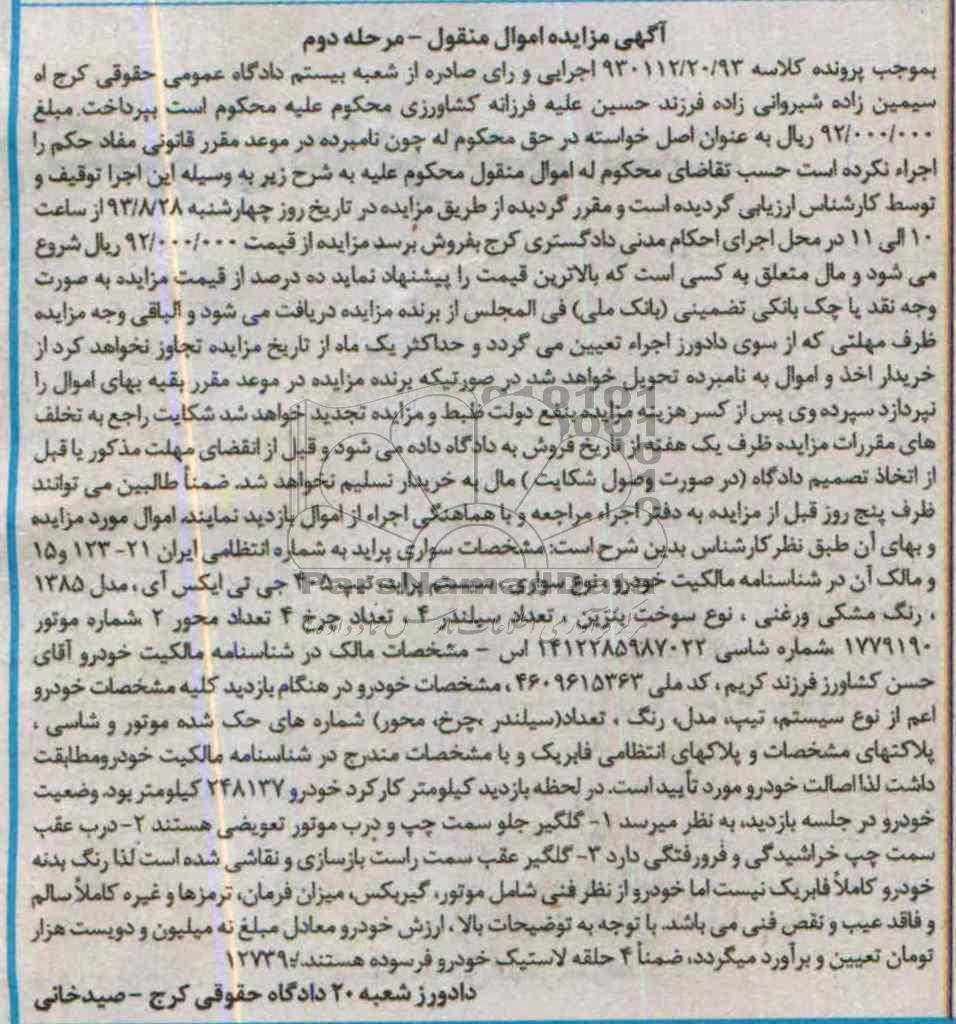 آگهی مزایده اموال منقول - مرحله دوم
بموجب پرونده کلاسه ۹۳۰۱۱۲/۲۰/۹۳ اجرایی و رای صادره از شعبه بیستم دادگاه عمومی حقوقی کرج له
سیمین زاده شیروانی زاده فرزند حسین علیه فرزانه کشاورزی محکوم علیه محکوم است بپرداخت مبلغ
۹۲/۰۰۰/۰۰۰ ریال به عنوان اصل خواسته در حق محکوم له چون نامبرده در موعد مقرر قانونی مفاد حکم را
اجراء نکرده است حسب تقاضای محکوم له اموال منقول محکوم علیه به شرح زیر به وسیله این اجرا توقیف و
توسط کارشناس ارزیابی گردیده است و مقرر گردیده از طریق مزایده در تاریخ روز چهارشنبه ۹۳/۸/۲۸ از ساعت
۱۰ الی ۱۱ در محل اجرای احکام مدنی دادگستری کرج بفروش برسد مزایده از قیمت ۹۲/۰۰۰/۰۰۰ ریال شروع
می شود و مال متعلق به کسی است که بالاترین قیمت را پیشنهاد نماید ده درصد از قیمت مزایده به صورت
وجه نقد یا چک بانکی تضمینی (بانک ملی) فی المجلس از برنده مزایده دریافت می شود و الباقی وجه مزایده
ظرف مهلتی که از سوی دادورز اجراء تعیین می گردد و حداکثر یک ماه از تاریخ مزایده تجاوز نخواهد کرد از
خریدار اخذ و اموال به نامبرده تحویل خواهد شد در صورتیکه برنده مزایده در موعد مقرر بقیه بهای اموال را
نپردازد سپرده وی پس از کسر هزینه مزایده بنفع دولت ظبط و مزایده تجدید خواهد شد شکایت راجع به تخلف
های مقررات مزایده ظرف یک هفته از تاریخ فروش به دادگاه داده می شود و قبل از انقضای مهلت مذکور یا قبل
از اتخاذ تصمیم دادگاه (در صورت وصول شکایت) مال به خریدار تسلیم نخواهد شد. ضمناً طالبین می توانند
ظرف پنج روز قبل از مزایده به دفتر اجراء مراجعه و با هماهنگی اجراء از اموال بازدید نمایند. اموال مورد مزایده
و بهای آن طبق نظر کارشناس بدین شرح است: مشخصات سواری پراید به شماره انتظامی ایران ۲۱- ۱۲۳ و۱۵
و مالک آن در شناسنامه مالکیت خودرو، نوع سواری ، سیستم پراید تیپ ۵-۴ جی تی ایکس آی ، مدل ۱۳۸۵
، رنگ مشکی ورغنی ، نوع سوخت بنزین ، تعداد سیلندر ۴ ، تعداد چرخ ۴ تعداد محور ۲ ،شماره موتور
۱۷۷۹۱۹۰ ،شماره شاسی ۱۴۱۲۲۸۵۹۸۷۰۲۲ اس - مشخصات مالک در شناسنامه مالکیت خودرو آقای
حسن کشاورز فرزند کریم ، کد ملی ۴۶۰۹۶۱۵۳۶۳ ، مشخصات خودرو در هنگام بازدید کلیه مشخصات خودرو
اعم از نوع سیستم، تیپ، مدل، رنگ ، تعداد(سیلندر ،چرخ، محور) شماره های حک شده موتور و شاسی ،
پلاکتهای مشخصات و پلاکهای انتظامی فابریک و با مشخصات مندرج در شناسنامه مالکیت خودرومطابقت
داشت لذا اصالت خودرو مورد تأیید است. در لحظه بازدید کیلومتر کارکرد خودرو ۲۴۸۱۳۷ کیلومتر بود. وضعیت
خودرو در جلسه بازدید، به نظر میرسد ۱- گلگیر جلو سمت چپ و درب موتور تعویضی هستند ۲- درب عقب
سمت چپ خراشیدگی و فرورفتگی دارد ۳- گلگیر عقب سمت راست بازسازی و نقاشی شده است لذا رنگ بدنه
خودرو کاملاً فابریک نیست اما خودرو از نظر فنی شامل موتور، گیربکس، میزان فرمان، ترمزها و غیره کاملاً سالم
و فاقد عیب و نقص فنی می باشد. با توجه به توضیحات بالا ، ارزش خودرو معادل مبلغ نه میلیون و دویست هزار
تومان تعیین و برآورد میگردد، ضمناً ۴ حلقه لاستیک خودرو فرسوده هستند./۱۲۷۳۹
دادورز شعبه ۲۰ دادگاه حقوقی کرج - صیدخانی